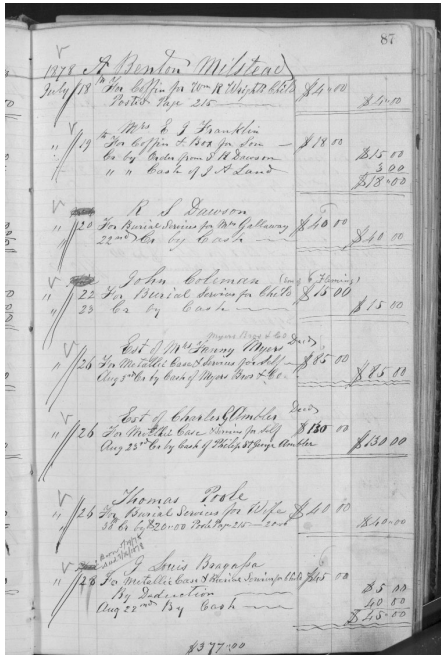 87
1878 A Benton Milstead
July 18th For Coffin for Wm R Wright Child $4.00
Posted Page 215 $4.00
Mrs E J Franklin
" 19th For Coffin & Box for Son $18 00
" Cr by Order from S R Dawson $15 00
" " Cash of J N Land 3 00
$18.00
R S Dawson
" 20 For Burial Services for Mrs Gallaway $40 00
22nd Cr by Cash $40 00
John Coleman
" 22 For Burial Services for Child $15 00
" 23 Cr by Cash $15 00
Myers Bros & Co
Est of Mrs Fanny Myers Decd
" 26 For Metallic Case & Services for Self $85 00
Aug 5th Cr by Cash of Myers Bros & Co $85 00
Est of Charles J Ambler Decd
" 26 For Metallic Case & Services for Self $130 00
Aug 23rd Cr by Cash of Philip St George Ambler $130 00
Thomas Poole
" 26 For Burial Services for Wife $40 00
" Cr by $20.00 Postd Page 215 20.00 $40.00
J Louis Bragassa
" 28 To Metallic Case & Burial Services for Child $45 00
By Deduction $5 00
Aug 22nd By Cash 40 00
$45.00
$377.00